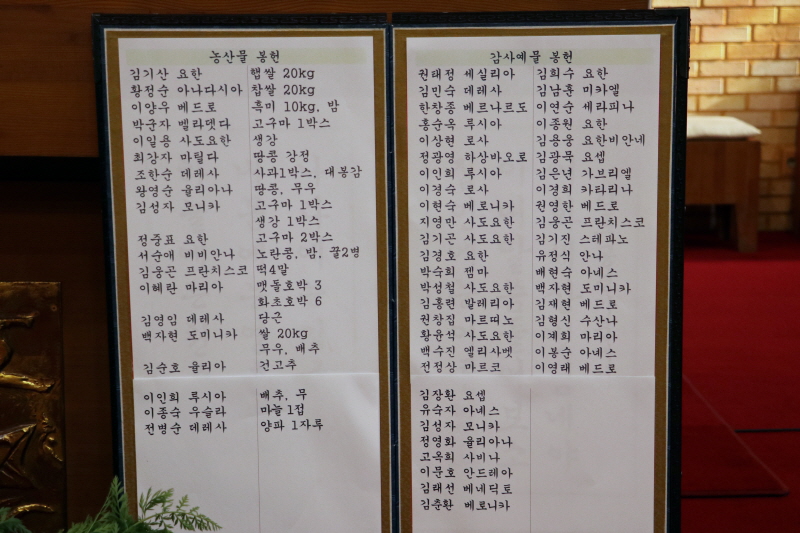 농산물 봉헌
김기산 요한 햅쌀 20kg
황정순 아나다시아 찹쌀 20kg
이양우 베드로 흑미 10kg, 밤
박순자 벨라뎃다 고구마 1박스
이일용 사도요한 생강
최강자 마틸다 땅콩 강정
조한순 데레사 사과1박스, 대봉감
왕영순 율리아나 땅콩, 무우
김성자 모니카 고구마 1박스
생강 1박스
정중표 요한 고구마 2박스
서순애 비비안나 노란콩, 밤, 꿀2병
김웅곤 프란치스코 떡4말
이혜란 마리아 맷돌호박 3
화초호박 6
김영임 데레사 당근
백자현 도미니카 쌀 20kg
무우, 배추
김순호 율리아 건고추
이인희 륵시아 배추, 무
이종숙 우슬라 마늘 1접
전병순 데레사 양파 1자루
감사예물 봉헌
권태정 세실리아 김희수 요한
김민수 데레사 김남훈 미카엘
한창종 베르나르도 이연순 세라피나
홍순옥 륵시아 이종원 요한
이상현 로사 김용웅 요한비안네
정광영 하상바오로 김광묵 요셉
이인희 륵시아 김은년 가브리엘
이경숙 로사 이경희 카타리나
이현숙 베로니카 권영한 베드로
지영만 사도요한 김웅곤 프란치스코
김기곤 사도요한 김기진 스테파노
김경호 요한 유정식 안나
박숙희 젬마 배현숙 아녜스
박성철 사도요한 백자현 도미니카
김홍련 발레리아 김재현 베드로
권창집 마르띠노 김형신 수산나
황윤석 사도요한 이계희 마리아
백수진 엘리사벳 이봉순 아녜스
전정상 마르코 이영래 베드로
김장환 요셉
유숙자 아녜스
김성자 모니카
정영화 율리아나
고옥희 사비나
이문호 안드레아
김태선 베네딕토
김춘환 베로니카